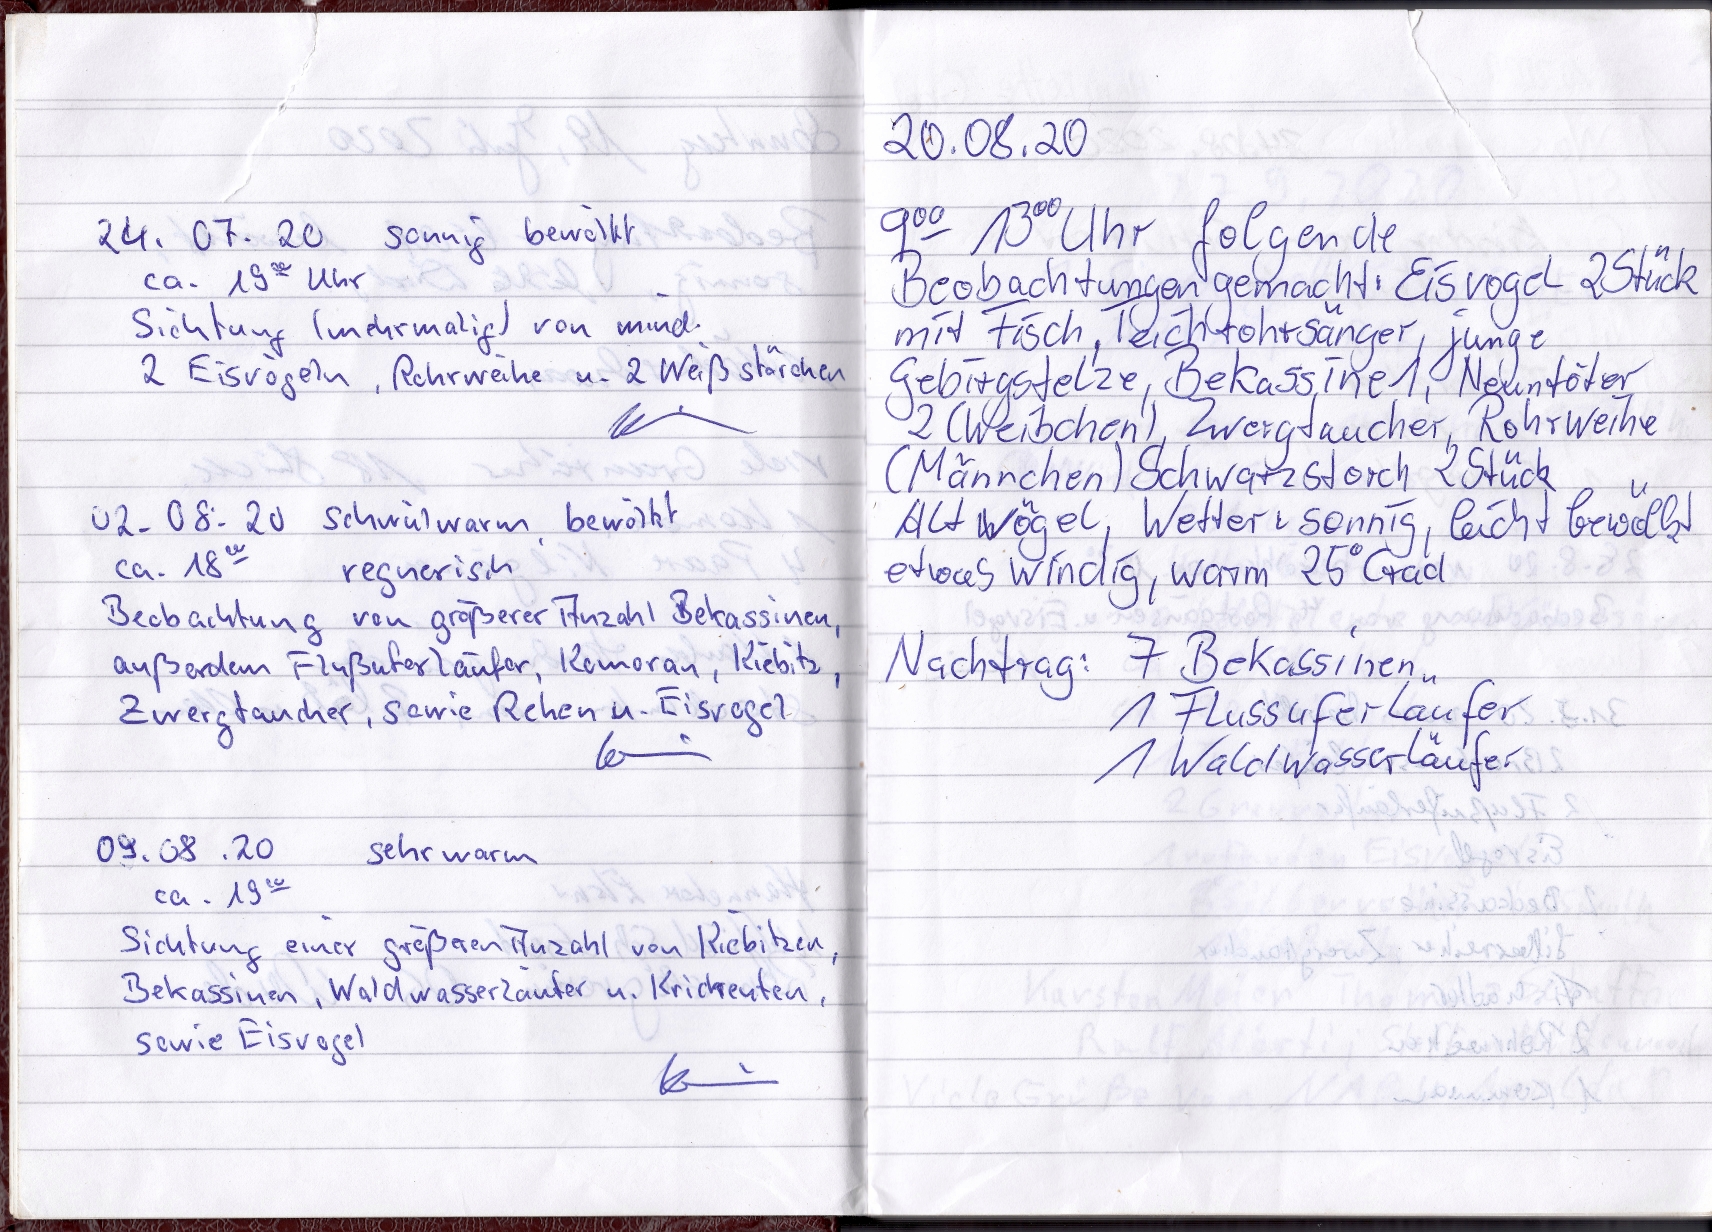 24. 07. 20 sonnig bewölkt
ca. 19⁰⁰ Uhr
Sichtung (mehrmalig) von mind.
2 Eisvögeln, Rohrweihe u. 2 Weißstörchen
02. 08. 20 schwülwarm, bewölkt
ca. 18⁰⁰ regnerisch
Beobachtung von größerer Anzahl Bekassinen,
außerdem Flußuferläufer, Komoran, Kiebitz,
Zwergtaucher, sowie Rehen u. Eisvogel
09. 08. 20 sehr warm
ca. 19⁰⁰
Sichtung einer größeren Anzahl von Kiebitzen,
Bekassinen, Waldwasserläufer u. Krickenten,
sowie Eisvogel
20.08.20
9⁰⁰ 13⁰⁰ Uhr folgende
Beobachtungen gemacht: Eisvogel 2 Stück
mit Fisch, Teichrohrsänger, junge
Gebirgstelze, Bekassine 1, Neuntöter
2 (Weibchen), Zwergtaucher, Rohrweihe
(Männchen) Schwarzstorch 2 Stück
Alt vögel, Wetter: sonnig, leicht bewölkt
etwas windig, warm 25° Grad
Nachtrag: 7 Bekassinen
1 Flussuferläufer
1 Waldwasserläufer